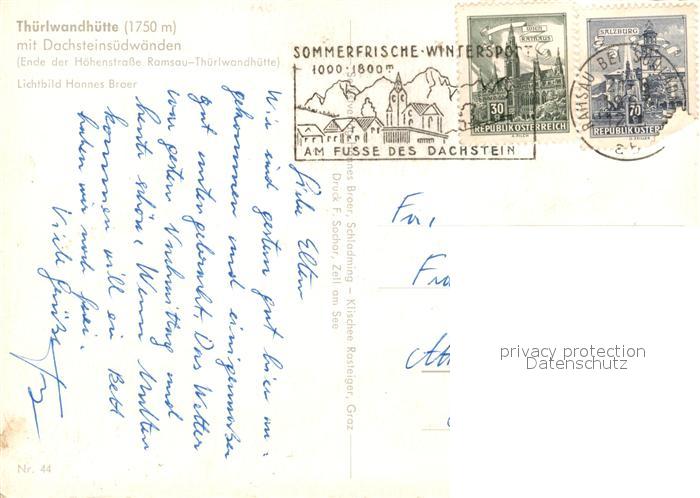 Thürlwandhütte (1750 m)
mit Dachsteinsüdwänden
(Ende der Höhenstraße Ramsau-Thürlwandhütte)
Lichtbild Hannes Broer
SOMMERFRISCHE-WINTERSPORT
1000-1800m
AM FUSSE DES DACHSTEIN
WIEN
RATHAUS
30
REPUBLIK ÖSTERREICH
SALZBURG
70
REPUBLIK ÖSTER
RAMSAU BEI
Liebe Eltern
Wir sind gestern gut hier an-
gekommen und einigermaßen
gut untergebracht. Das Wetter
war gestern Nachmittag und
heute schön, Wenn Mutter
kommen will ein Bett
haben wir noch frei.
Viele Grüße
nnes Broer, Schladming – Klischee Rasteiger, Graz
Druck F. Sochor, Zell am See
Nr. 44
Fa,
privacy protection
Datenschutz